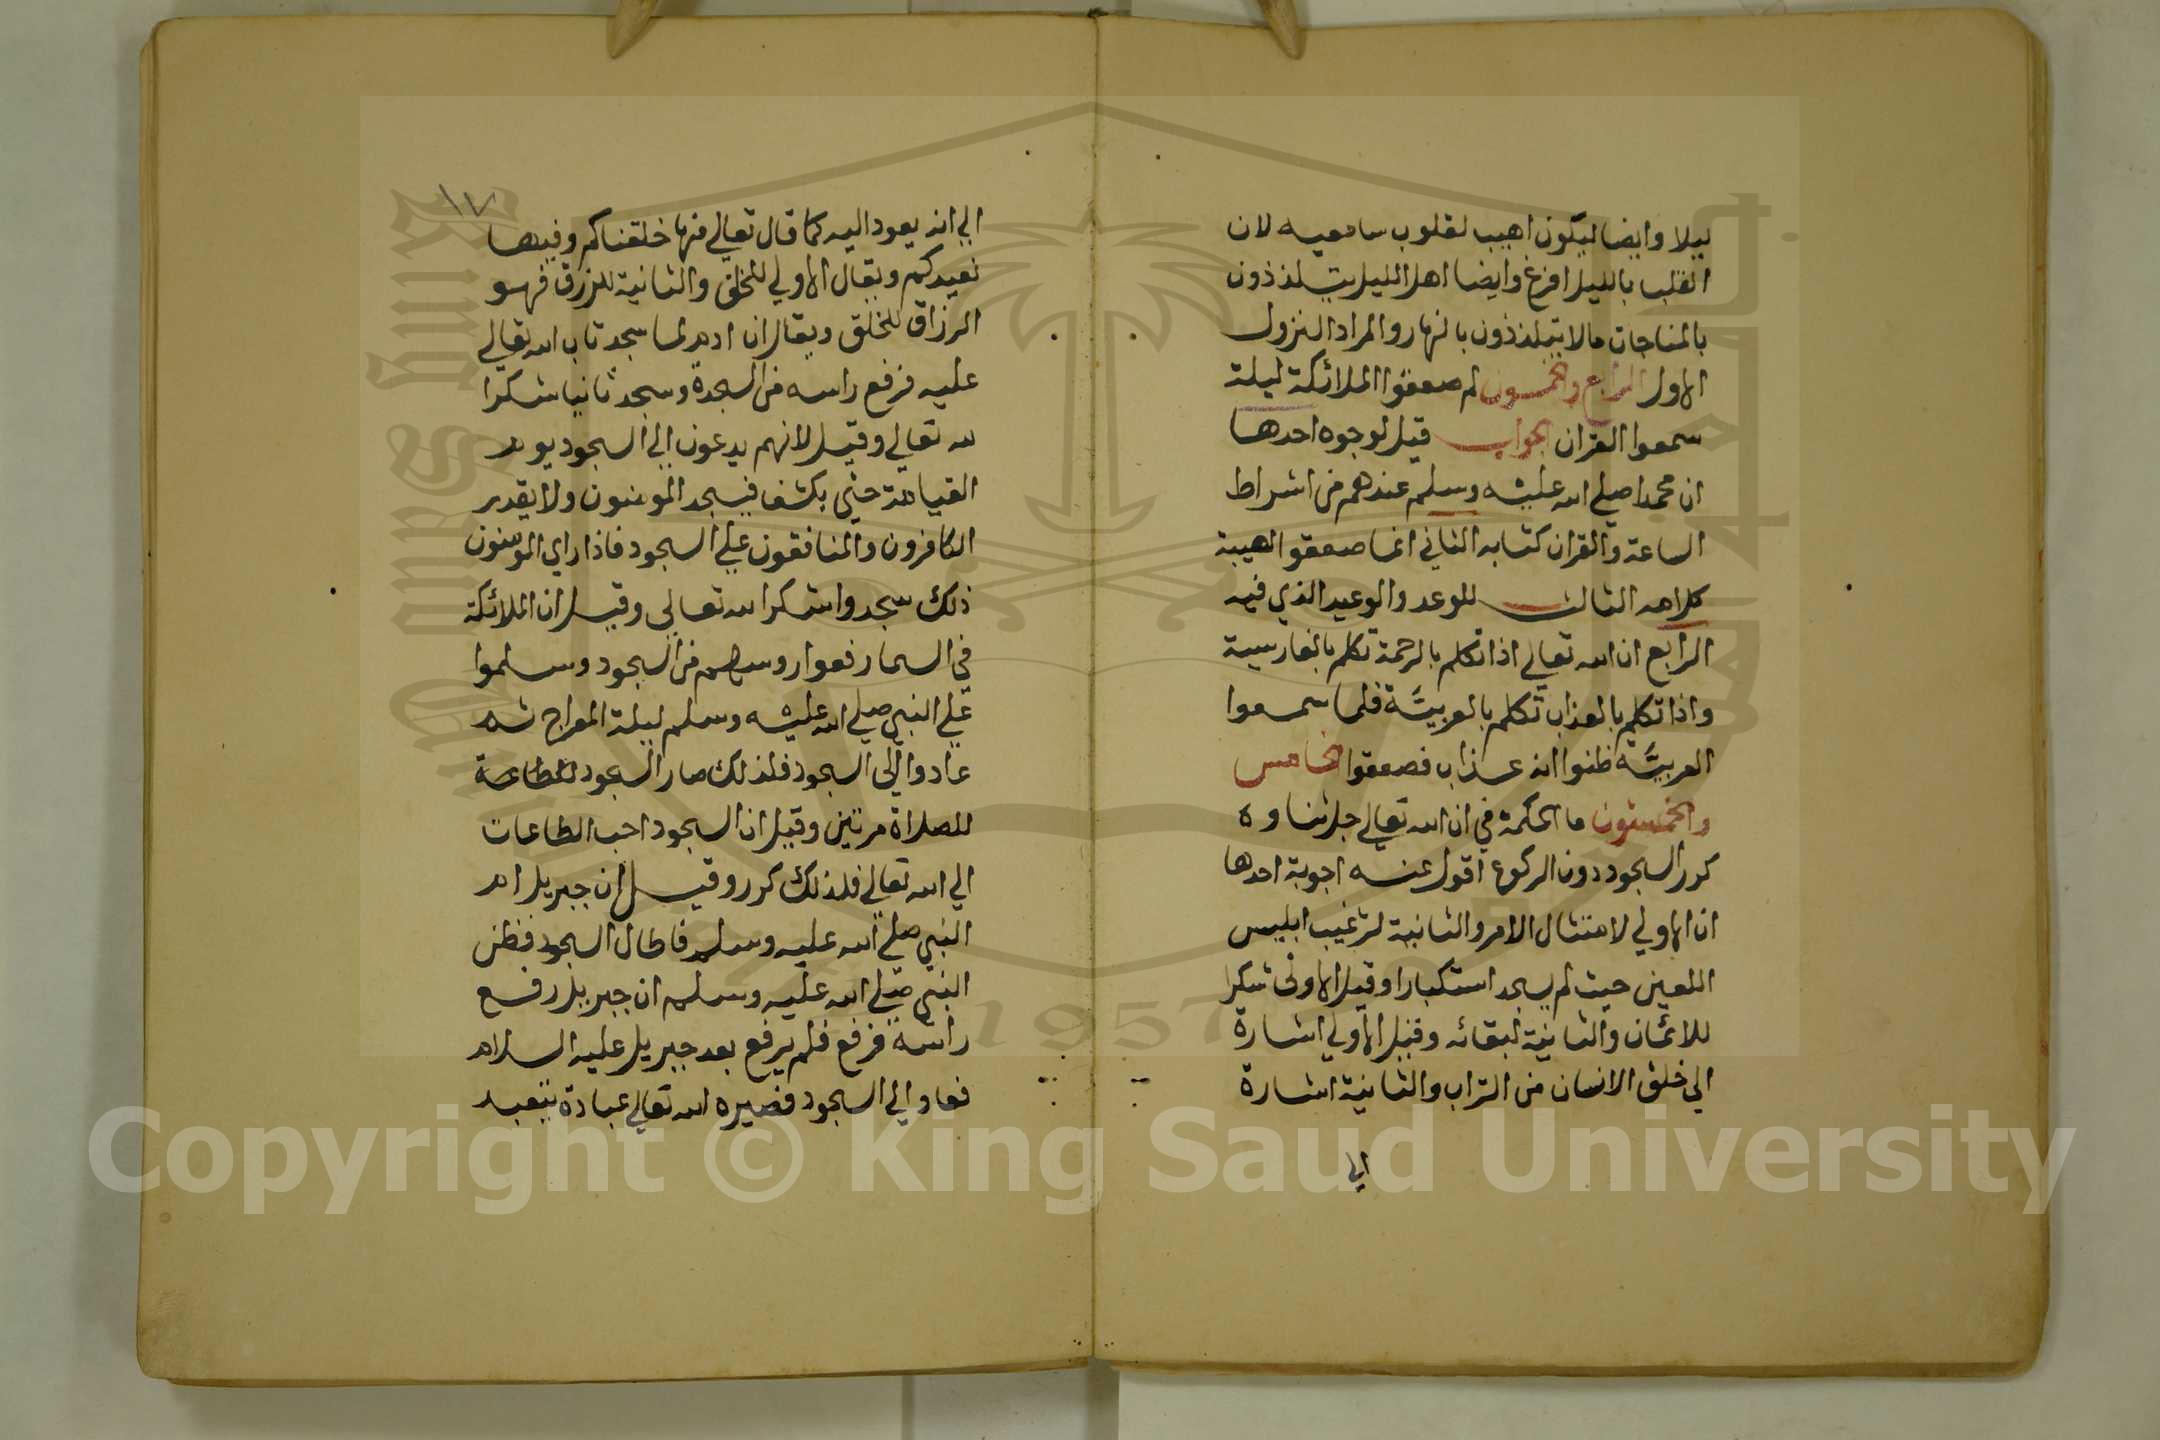 ليلا وايضا ليكون اهيب لقلوب سامعيه لان
القلب بالليل افرغ وايضا اهل الليل يتلذذون
بالمناجات مالا يتلذذون بالنهار والمراد النزول
الاول الرابع والخمسون لم صعقوا الملائكة ليلة
سمعوا القران الجواب قيل لوجوه احدها
ان محمدا صلي الله عليه وسلم عندهم من اشراط
الساعة والقران كتابه الثاني انما صعقوا لهيبة
كلامه الثالث للوعد والوعيد الذي فيه
الرابع ان الله تعالي اذا تكلم بالرحمة تكلم بالفارسية
واذا تكلم بالعذاب تكلم بالعربية فلما سمعوا
العربية ظنوا انه عذاب فصعقوا الخامس
والخمسون ما الحكمة في ان الله تعالي جل ثناوه
كرر السجود دون الركوع اقول عنه اجوبة احدها
ان الاولي لامتثال الامر والثانية لترغيب ابليس
اللعين حيث لم يسجد استكبارا وقيل الاولى شكرا
للائمان والثانية لبقائه وقيل الاولي اشارة
الي خلق الانسان من التراب والثانية اشارة
الي
١٧
الي انه يعود اليه كما قال تعالي منها خلقناكم وفيها
نعيدكم ويقال الاولي للخلق والثانية للرزق فهو
الرزاق للخلق ويقال ان ادم لما سجد تاب الله تعالي
عليه فرفع راسه من السجدة وسجد ثانيا شكرا
لله تعالي وقيل لانهم يدعون الي السجود يوم
القيامة حتي يكشف فيسجد المومنون ولا يقدر
الكافرون والمنافقون علي السجود فاذا راي المومنون
ذلك سجدوا شكرا لله تعالي وقيل ان الملائكة
في السما رفعوا روسهم من السجود وسلموا
علي النبي صلي الله عليه وسلم ليلة المعراج ثم
عادوا الى السجود فلذلك صار السجود للطاعة
للصلاة مرتين وقيل ان السجود احب الطاعات
الي الله تعالي فلذلك كرر وقيل ان جبريل ام
النبي صلي الله عليه وسلم فاطال السجود فظن
النبي صلي الله عليه وسلم ان جبريل رفع
راسه فرفع فلم يرفع بعد جبريل عليه السلام
فعاد الي السجود فصيره الله تعالي عبادة يتعبد
Copyright © King Saud University
1957